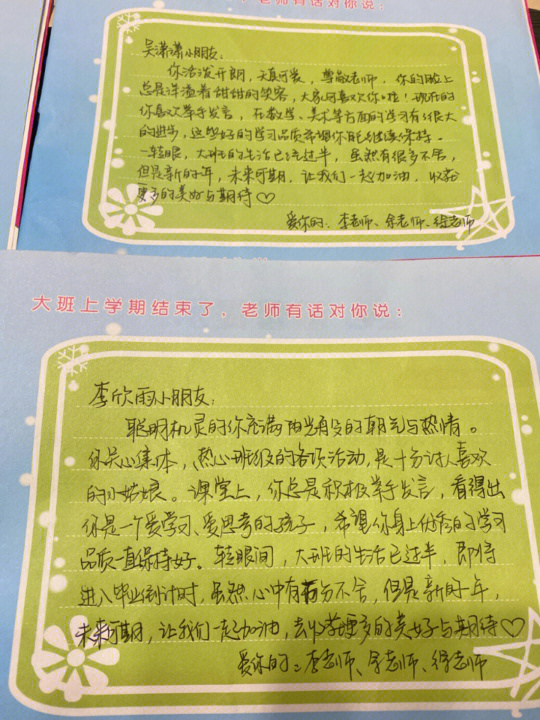 老师有话对你说：
吴潇潇小朋友：
你活泼开朗，天真可爱，尊敬老师，你的脸上
总是洋溢着甜甜的笑容，大家可喜欢你啦！现在的
你喜欢举手发言，在数学、美术等方面的学习有了很大
的进步，这些好的学习品质希望你能继续保持。
一转眼，大班的生活已法过半，虽然有很多不舍，
但是新的一年，未来可期，让我们一起加油，收获
更多的美好与期待♡
爱你的：李老师、余老师、徐老师
大班上学期结束了，老师有话对你说：
李欣雨小朋友：
聪明机灵的你充满着的朝气与热情。
你关心集体，热心班级的各项活动，是十分讨人喜欢
的小姑娘。课堂上，你总是积极举手发言，看得出
你是一个爱学习、爱思考的孩子，希望你身上优秀的学习
品质一直保持好。转眼间，大班的生活已过半，即将
进入毕业倒计时，虽然心中有万分不舍，但是新的一年，
未来可期，让我们一起加油，去更多的美好与期待♡
爱你的：李老师、余老师、徐老师